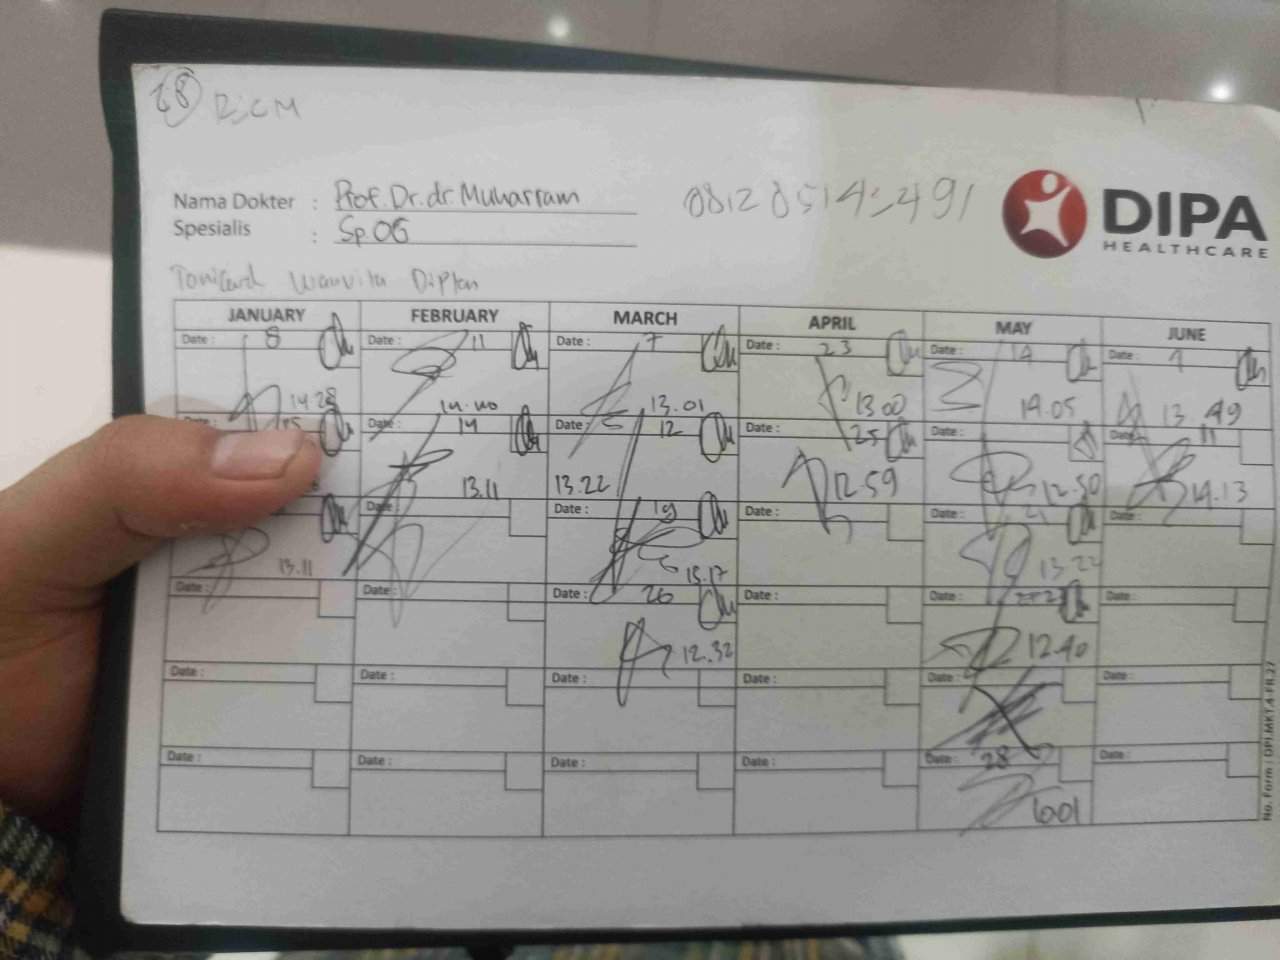 68 RSCM
Nama Dokter : Prof. Dr. dr. Muharram
Spesialis : Sp.OG
DIPA
HEALTHCARE
JANUARY FEBRUARY MARCH APRIL MAY JUNE
Date : 8 Date : 11 Date : 7 Date : 23 Date : 14 Date :
14.28 14.40 13.01 13.00 14.05 13.49
Date : 14 Date : 12 Date : 25 Date : Date : 11
13.11 13.22 12.59 12.50 14.13
Date : Date : 19 Date : Date : 21 Date :
13.11 15.17 13.22
Date : Date : Date : 26 Date : Date : Date :
12.32 12.40
Date : Date : Date : Date : Date : Date :
Date : Date : Date : Date : Date : 28 Date :
No. Form : DPI.MKT.4-FR.27